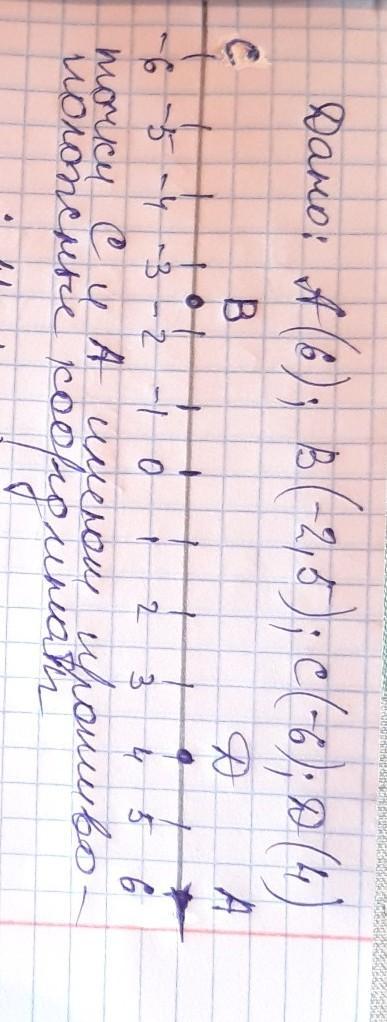 Дано: А(6); В(-2,5); С(-6); Д(4)
С В Д А
-6 -5 -4 -3 -2 -1 0 1 2 3 4 5 6
точки С и А имеют противо-
положные координаты